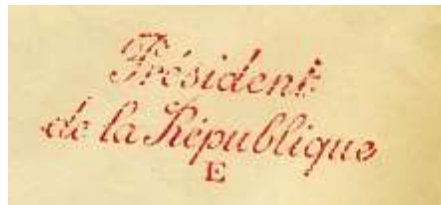 Président
de la République
E